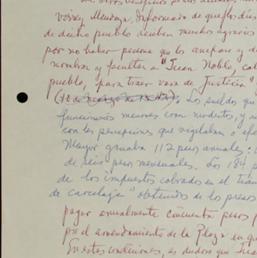 virrey Mendoza, informado de que los días
de dicho pueblo reciben muchos agravios
por no haber persona que los ampare y de
nombra y faculta a "Juan Noble, cal
pueblo, para traer vara de Justicia"
Los sueldos que
funcionarios menores eran modestos, y
con las percepciones que
Mayor ganaba 112 pesos anuales:
de seis pesos mensuales. Los 184 p
de los impuestos cobrados en el
de carcelaje" obtenidos de los presos
pagar anualmente cincuenta pesos p
por el arrendamiento de la Plaza en que
En estas condiciones, es dudoso que Juan